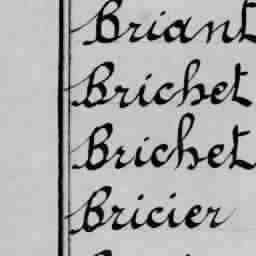 Briant
Brichet
Brichet
Bricier